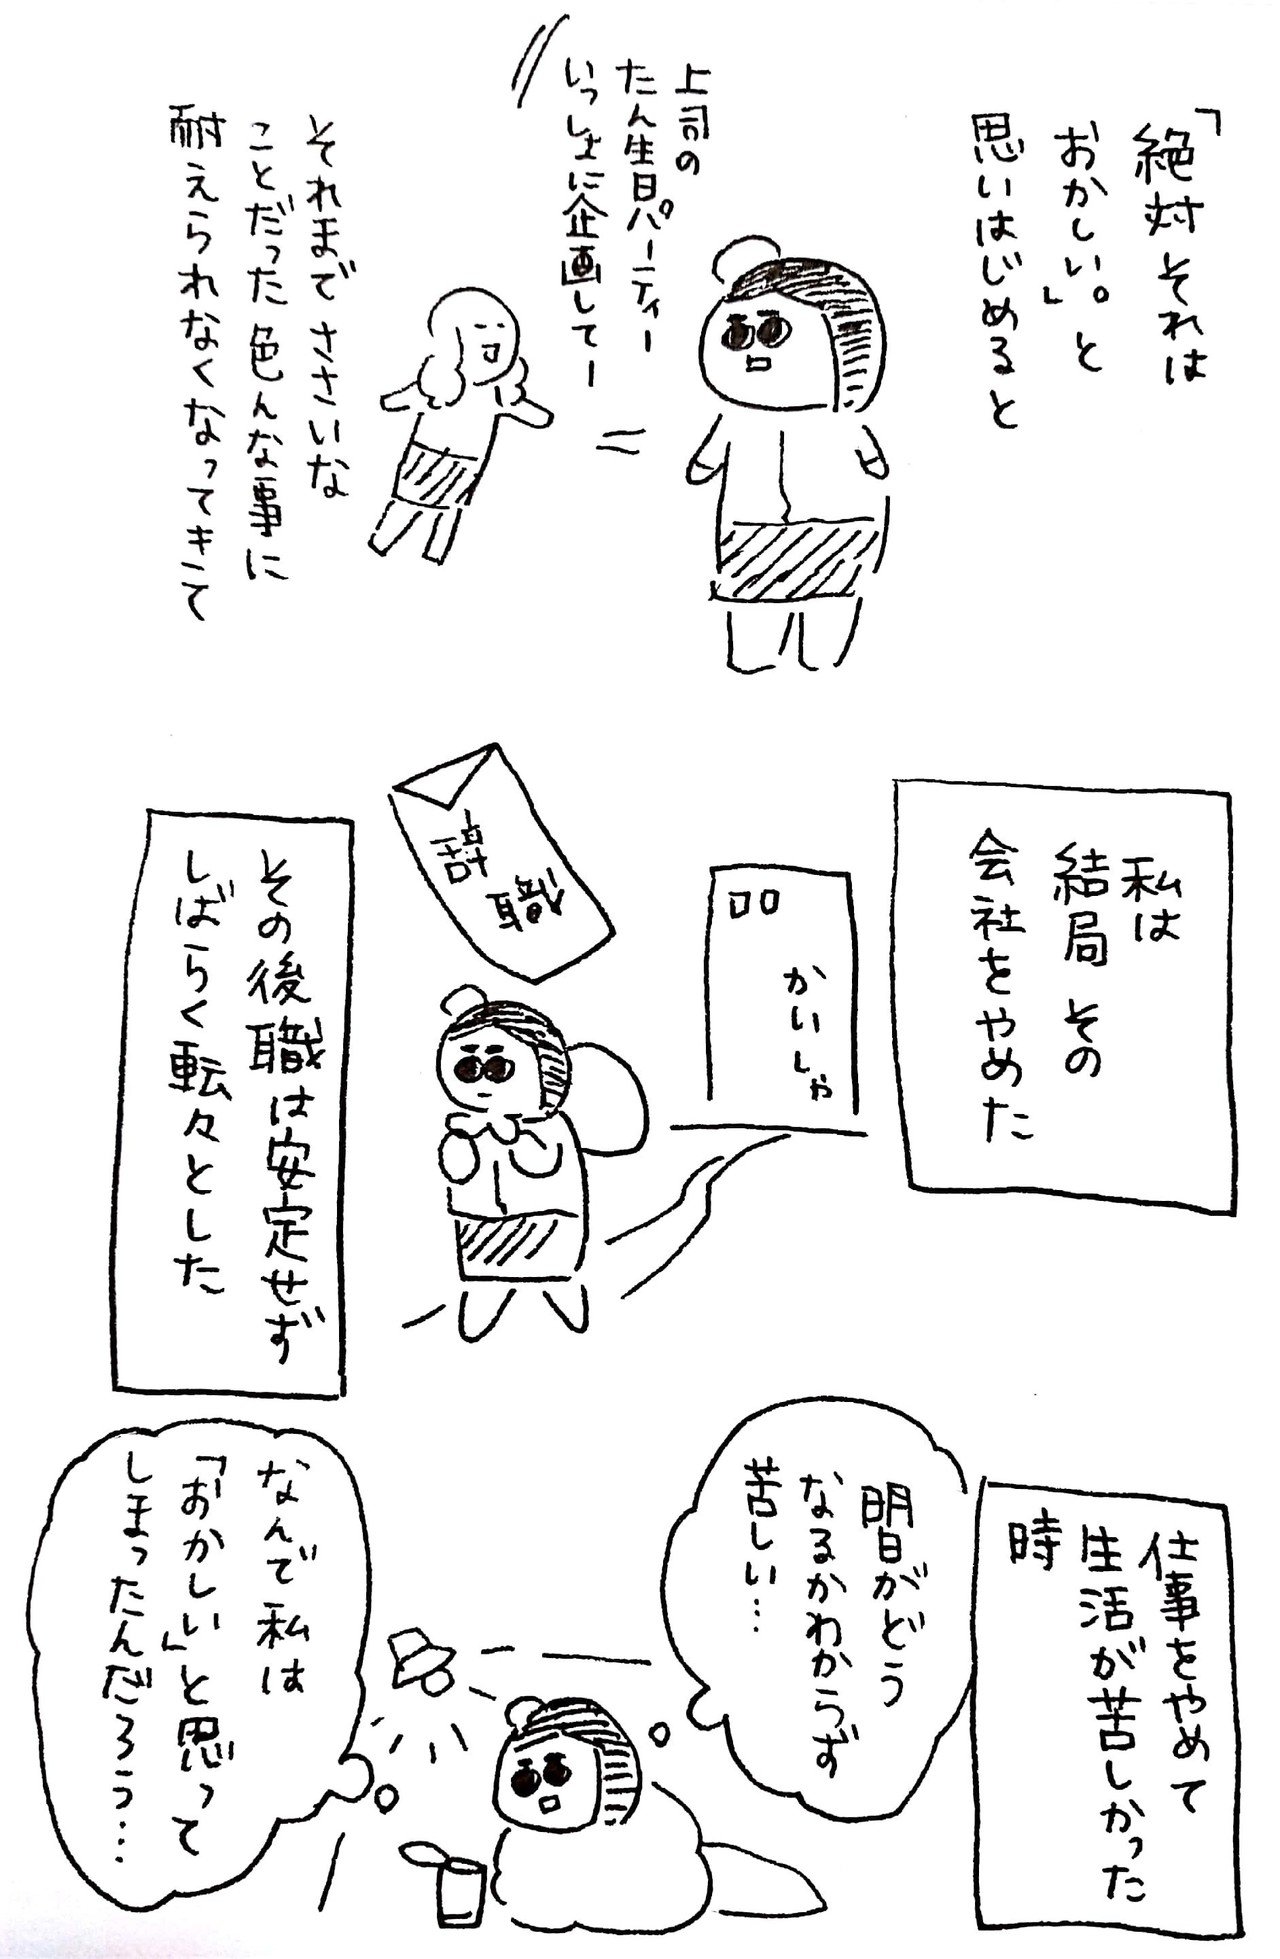 「絶対それは
おかしい。」と
思いはじめると
上司の
たん生日パーティー
いっしょに企画してー
それまでささいな
ことだった色んな事に
耐えられなくなってきて
私は
結局その
会社をやめた
かいしゃ
辞職
その後職は安定せず
しばらく転々とした
仕事をやめて
生活が苦しかった
時
明日がどう
なるかわからず
苦しい…
なんで私は
「おかしい」と思って
しまったんだろう…